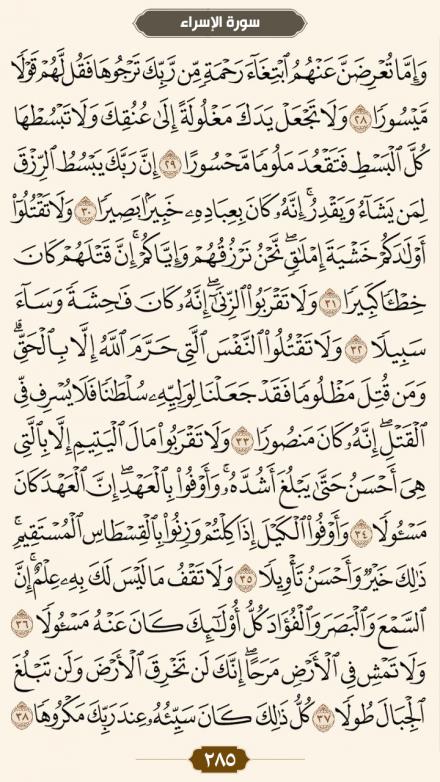 سورة الإسراء
وَإِمَّا تُعۡرِضَنَّ عَنۡهُمُ ٱبۡتِغَآءَ رَحۡمَةٖ مِّن رَّبِّكَ تَرۡجُوهَا فَقُل لَّهُمۡ قَوۡلٗا
مَّيۡسُورٗا ٢٨ وَلَا تَجۡعَلۡ يَدَكَ مَغۡلُولَةً إِلَىٰ عُنُقِكَ وَلَا تَبۡسُطۡهَا
كُلَّ ٱلۡبَسۡطِ فَتَقۡعُدَ مَلُومٗا مَّحۡسُورًا ٢٩ إِنَّ رَبَّكَ يَبۡسُطُ ٱلرِّزۡقَ
لِمَن يَشَآءُ وَيَقۡدِرُۚ إِنَّهُۥ كَانَ بِعِبَادِهِۦ خَبِيرَۢا بَصِيرٗا ٣٠ وَلَا تَقۡتُلُوٓاْ
أَوۡلَٰدَكُمۡ خَشۡيَةَ إِمۡلَٰقٖۖ نَّحۡنُ نَرۡزُقُهُمۡ وَإِيَّاكُمۡۚ إِنَّ قَتۡلَهُمۡ كَانَ
خِطۡـٔٗا كَبِيرٗا ٣١ وَلَا تَقۡرَبُواْ ٱلزِّنَىٰٓۖ إِنَّهُۥ كَانَ فَٰحِشَةٗ وَسَآءَ
سَبِيلٗا ٣٢ وَلَا تَقۡتُلُواْ ٱلنَّفۡسَ ٱلَّتِي حَرَّمَ ٱللَّهُ إِلَّا بِٱلۡحَقِّۗ
وَمَن قُتِلَ مَظۡلُومٗا فَقَدۡ جَعَلۡنَا لِوَلِيِّهِۦ سُلۡطَٰنٗا فَلَا يُسۡرِف فِّي
ٱلۡقَتۡلِۖ إِنَّهُۥ كَانَ مَنصُورٗا ٣٣ وَلَا تَقۡرَبُواْ مَالَ ٱلۡيَتِيمِ إِلَّا بِٱلَّتِي
هِيَ أَحۡسَنُ حَتَّىٰ يَبۡلُغَ أَشُدَّهُۥۚ وَأَوۡفُواْ بِٱلۡعَهۡدِۖ إِنَّ ٱلۡعَهۡدَ كَانَ
مَسۡـُٔولٗا ٣٤ وَأَوۡفُواْ ٱلۡكَيۡلَ إِذَا كِلۡتُمۡ وَزِنُواْ بِٱلۡقِسۡطَاسِ ٱلۡمُسۡتَقِيمِۚ
ذَٰلِكَ خَيۡرٞ وَأَحۡسَنُ تَأۡوِيلٗا ٣٥ وَلَا تَقۡفُ مَا لَيۡسَ لَكَ بِهِۦ عِلۡمٌۚ إِنَّ
ٱلسَّمۡعَ وَٱلۡبَصَرَ وَٱلۡفُؤَادَ كُلُّ أُوْلَٰٓئِكَ كَانَ عَنۡهُ مَسۡـُٔولٗا ٣٦
وَلَا تَمۡشِ فِي ٱلۡأَرۡضِ مَرَحًاۖ إِنَّكَ لَن تَخۡرِقَ ٱلۡأَرۡضَ وَلَن تَبۡلُغَ
ٱلۡجِبَالَ طُولٗا ٣٧ كُلُّ ذَٰلِكَ كَانَ سَيِّئُهُۥ عِندَ رَبِّكَ مَكۡرُوهٗا ٣٨
٢٨٥